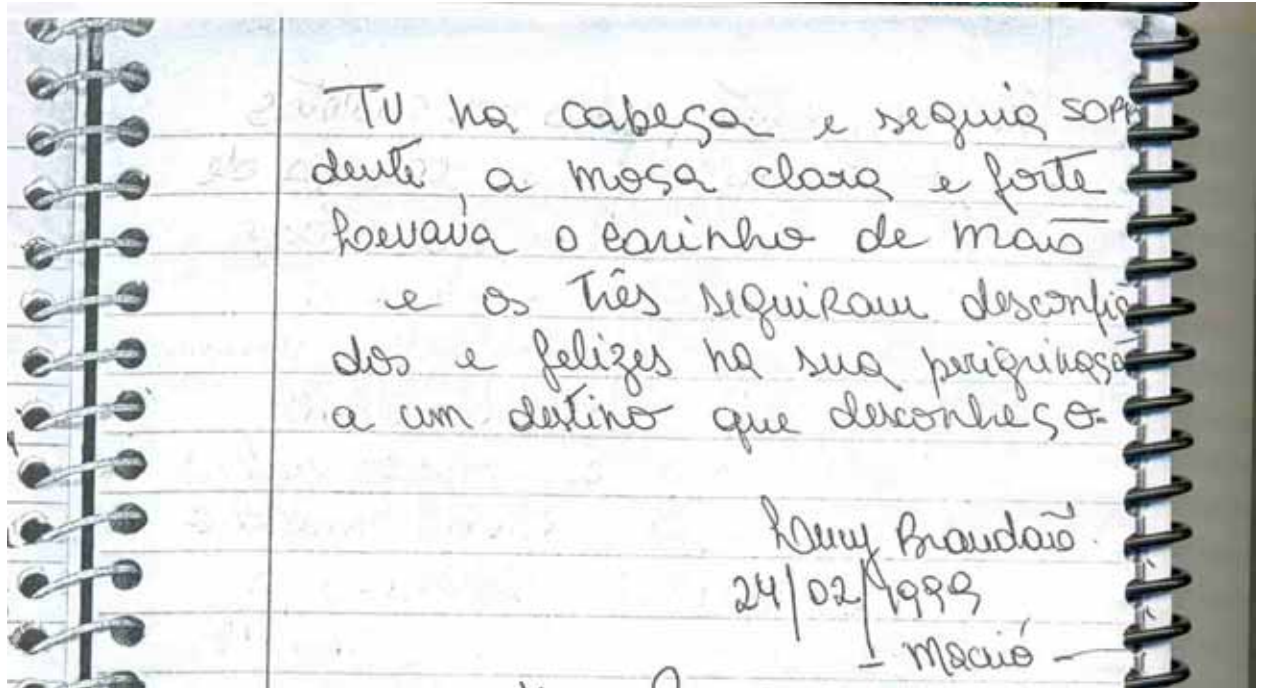 TV na cabeça e seguia sorri
dente, a moça clara e forte
Levava o carinho de mão
e os três seguiram desconfia
dos e felizes na sua perigrinaçã
a um destino que desconheço.
Brandão.
24/02/1999
- Maceió -